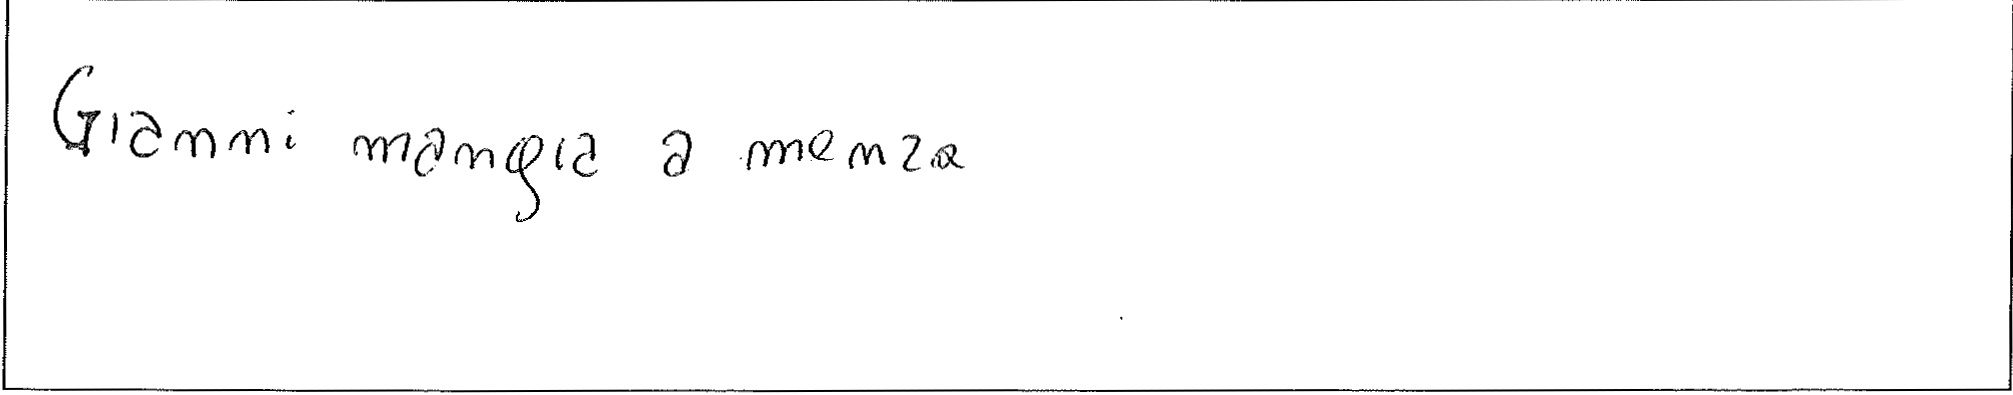 Gianni mangia a menza